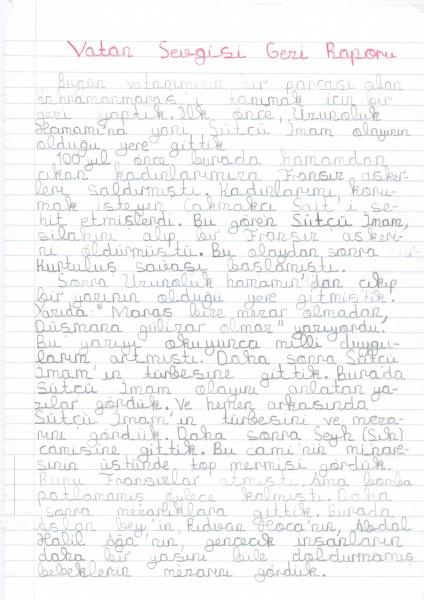 Vatan Sevgisi Gezi Raporu
Bugün vatanımızın bir parçası olan
Kahramanmaraş'ı tanımak için bir
gezi yaptık. İlk önce, Uzunoluk
Hamamı'na yani Sütçü İmam olayının
olduğu yere gittik
100 yıl önce burada hamamdan
çıkan kadınlarımıza Fransız asker-
leri saldırmıştı. Kadınlarımı koru-
mak isteyen Çakmakçı Sait'i şe-
hit etmişlerdi. Bu gören Sütçü İmam,
silahını alıp bir Fransız askeri-
ni öldürmüştü. Bu olaydan sonra
Kurtuluş savaşı başlamıştı.
Sonra Uzunoluk hamamın'dan çıkıp
bir yazının olduğu yere gitmiştik.
Yazıda "Maraş bize mezar olmadan,
Düşmana gülizar olmaz" yazıyordu.
Bu yazıyı okuyunca milli duygu-
larım artmıştı. Daha sonra Sütçü
İmam'ın türbesine gittik. Burada
Sütçü İmam olayını anlatan ya-
zılar gördük. Ve hemen arkasında
Sütçü İmam'ın türbesini ve meza-
rını gördük. Daha sonra Şeyh (Şıh)
camisine gittik. Bu cami'nin minare-
sinin üstünde top mermisi gördük.
Bunu Fransızlar atmıştı. Ama bomba
patlamamış öylece kalmıştı. Daha
sonra mezarlıklara gittik. Burada
Aslan bey'in, Rıdvan Hoca'nın, Abdal
Halil Ağa'nın, gencecik insanların
daha bir yaşını bile doldurmamış
bebeklerin mezarını gördük.